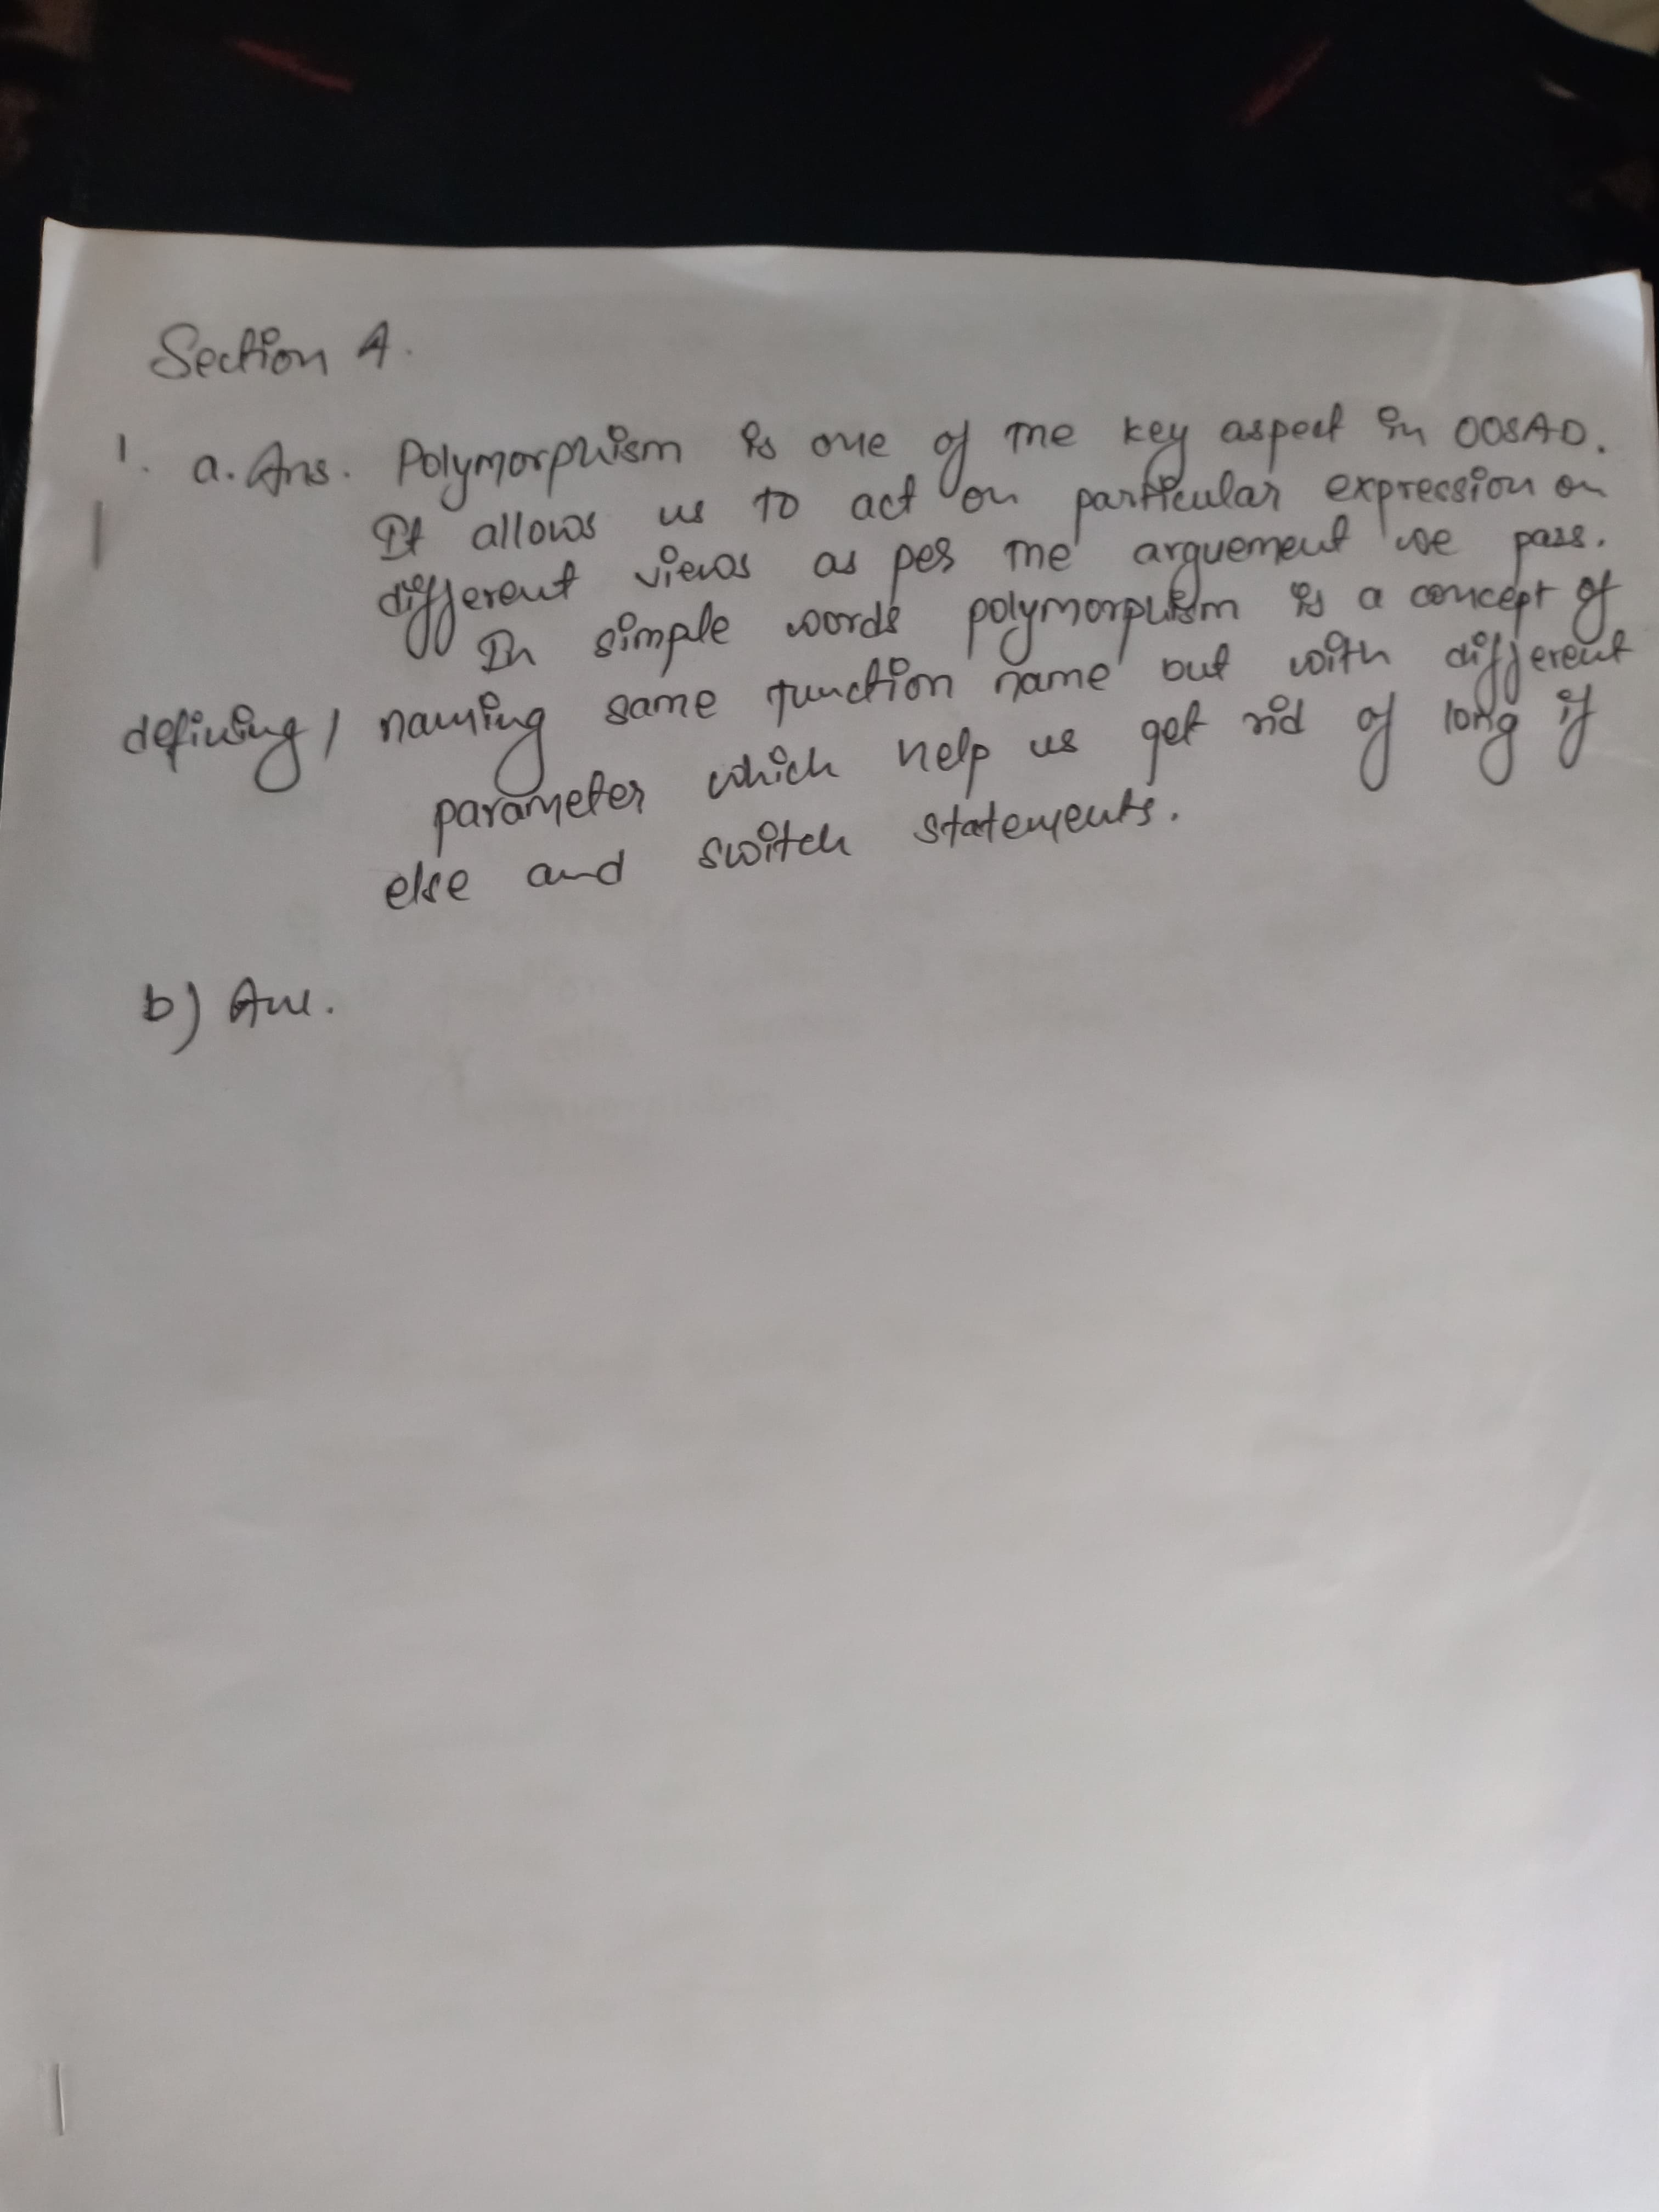 Section A.
1. a. Ans. Polymorphism is one of the key aspect in OOSAD.
It allows us to act on particular expression on
different views as per the arguement we pass.
In simple words polymorphism is a concept of
defining / naming same function name but with different
parameter which help us get rid of long if
else and switch statements.
b) Ans.